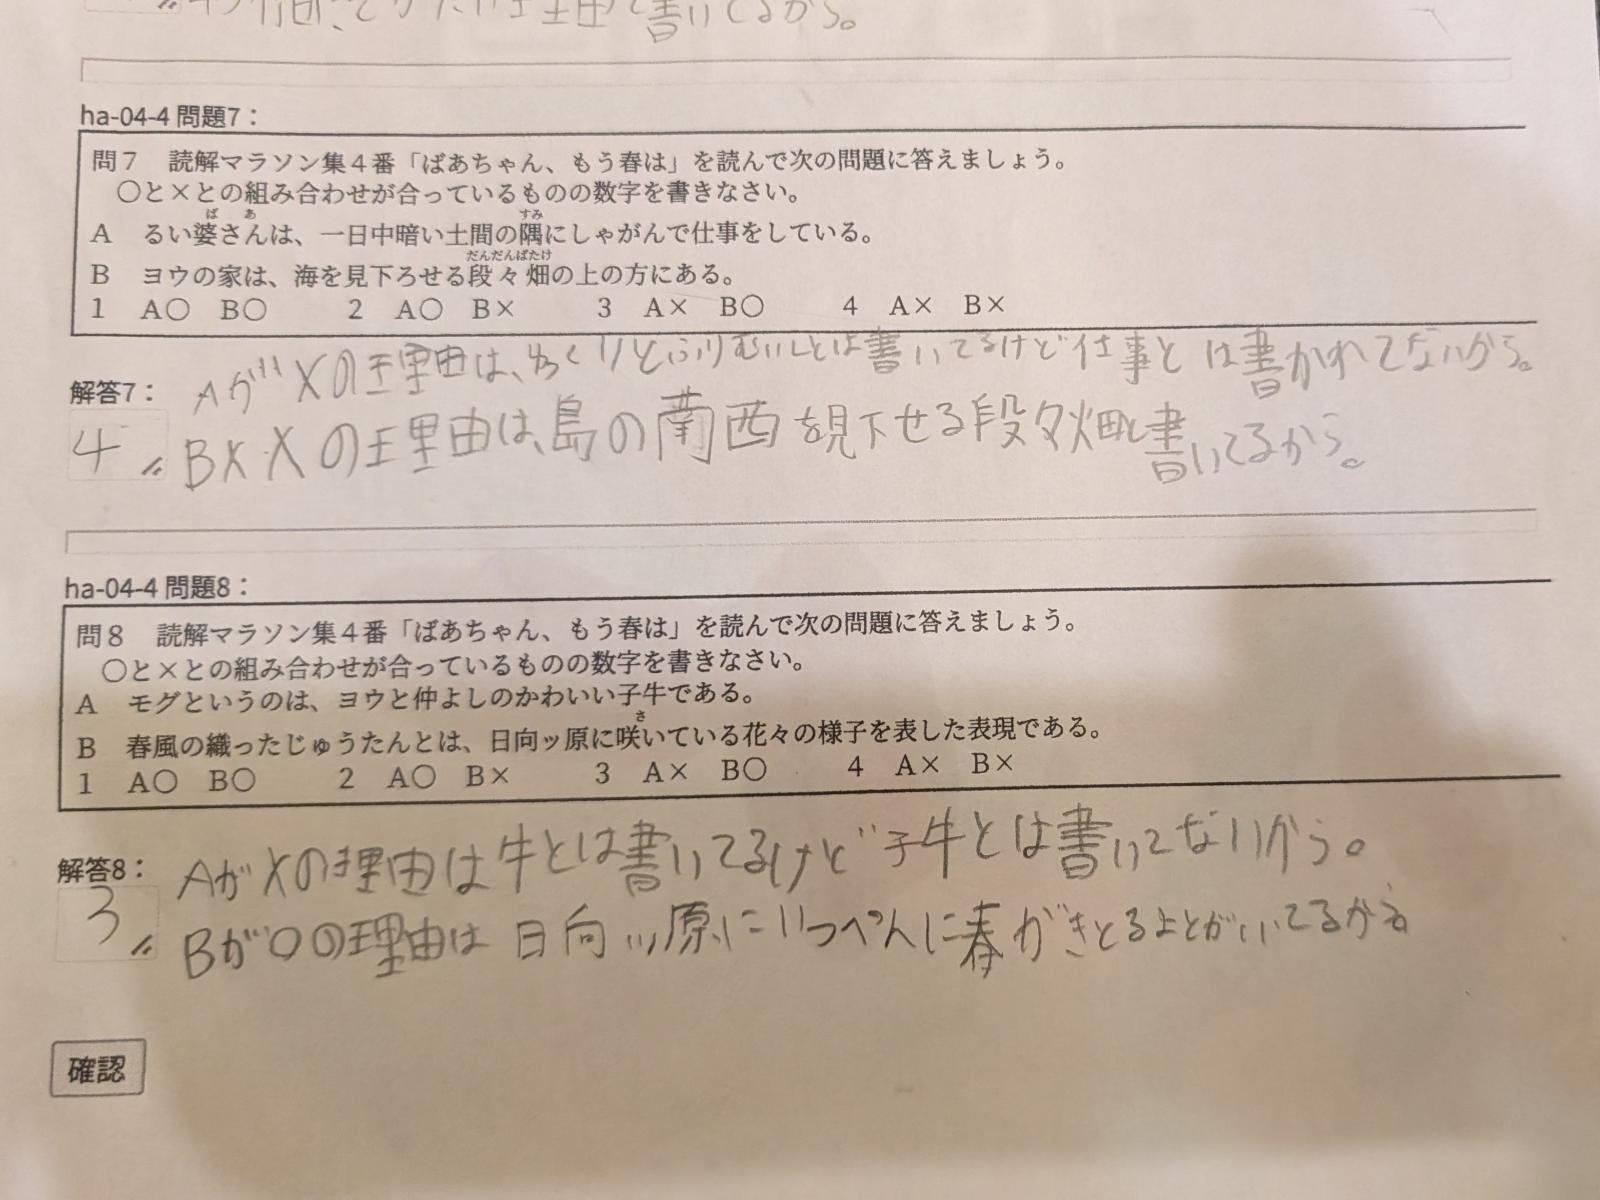 理由で書いてるから。
ha-04-4 問題7：
問７　読解マラソン集４番「ばあちゃん、もう春は」を読んで次の問題に答えましょう。
〇と×との組み合わせが合っているものの数字を書きなさい。
ば　あ　すみ
A　るい婆さんは、一日中暗い土間の隅にしゃがんで仕事をしている。
だんだんばたけ
B　ヨウの家は、海を見下ろせる段々畑の上の方にある。
1　A〇　B〇　2　A〇　B×　3　A×　B〇　4　A×　B×
AがXの理由は、ゆっくりとふりむいたとは書いてるけど仕事とは書かれてないから。
解答7：
4
BXXの理由は、島の南西を見下せる段々畑と書いてるから。
ha-04-4 問題8：
問８　読解マラソン集４番「ばあちゃん、もう春は」を読んで次の問題に答えましょう。
〇と×との組み合わせが合っているものの数字を書きなさい。
A　モグというのは、ヨウと仲よしのかわいい子牛である。
さ
B　春風の織ったじゅうたんとは、日向ッ原に咲いている花々の様子を表した表現である。
1　A〇　B〇　2　A〇　B×　3　A×　B〇　4　A×　B×
AがXの理由は牛とは書いてるけど子牛とは書いてないから。
解答8：
3
Bが〇の理由は日向ッ原にいっぺんに春がきとるよとかいてるから
確認